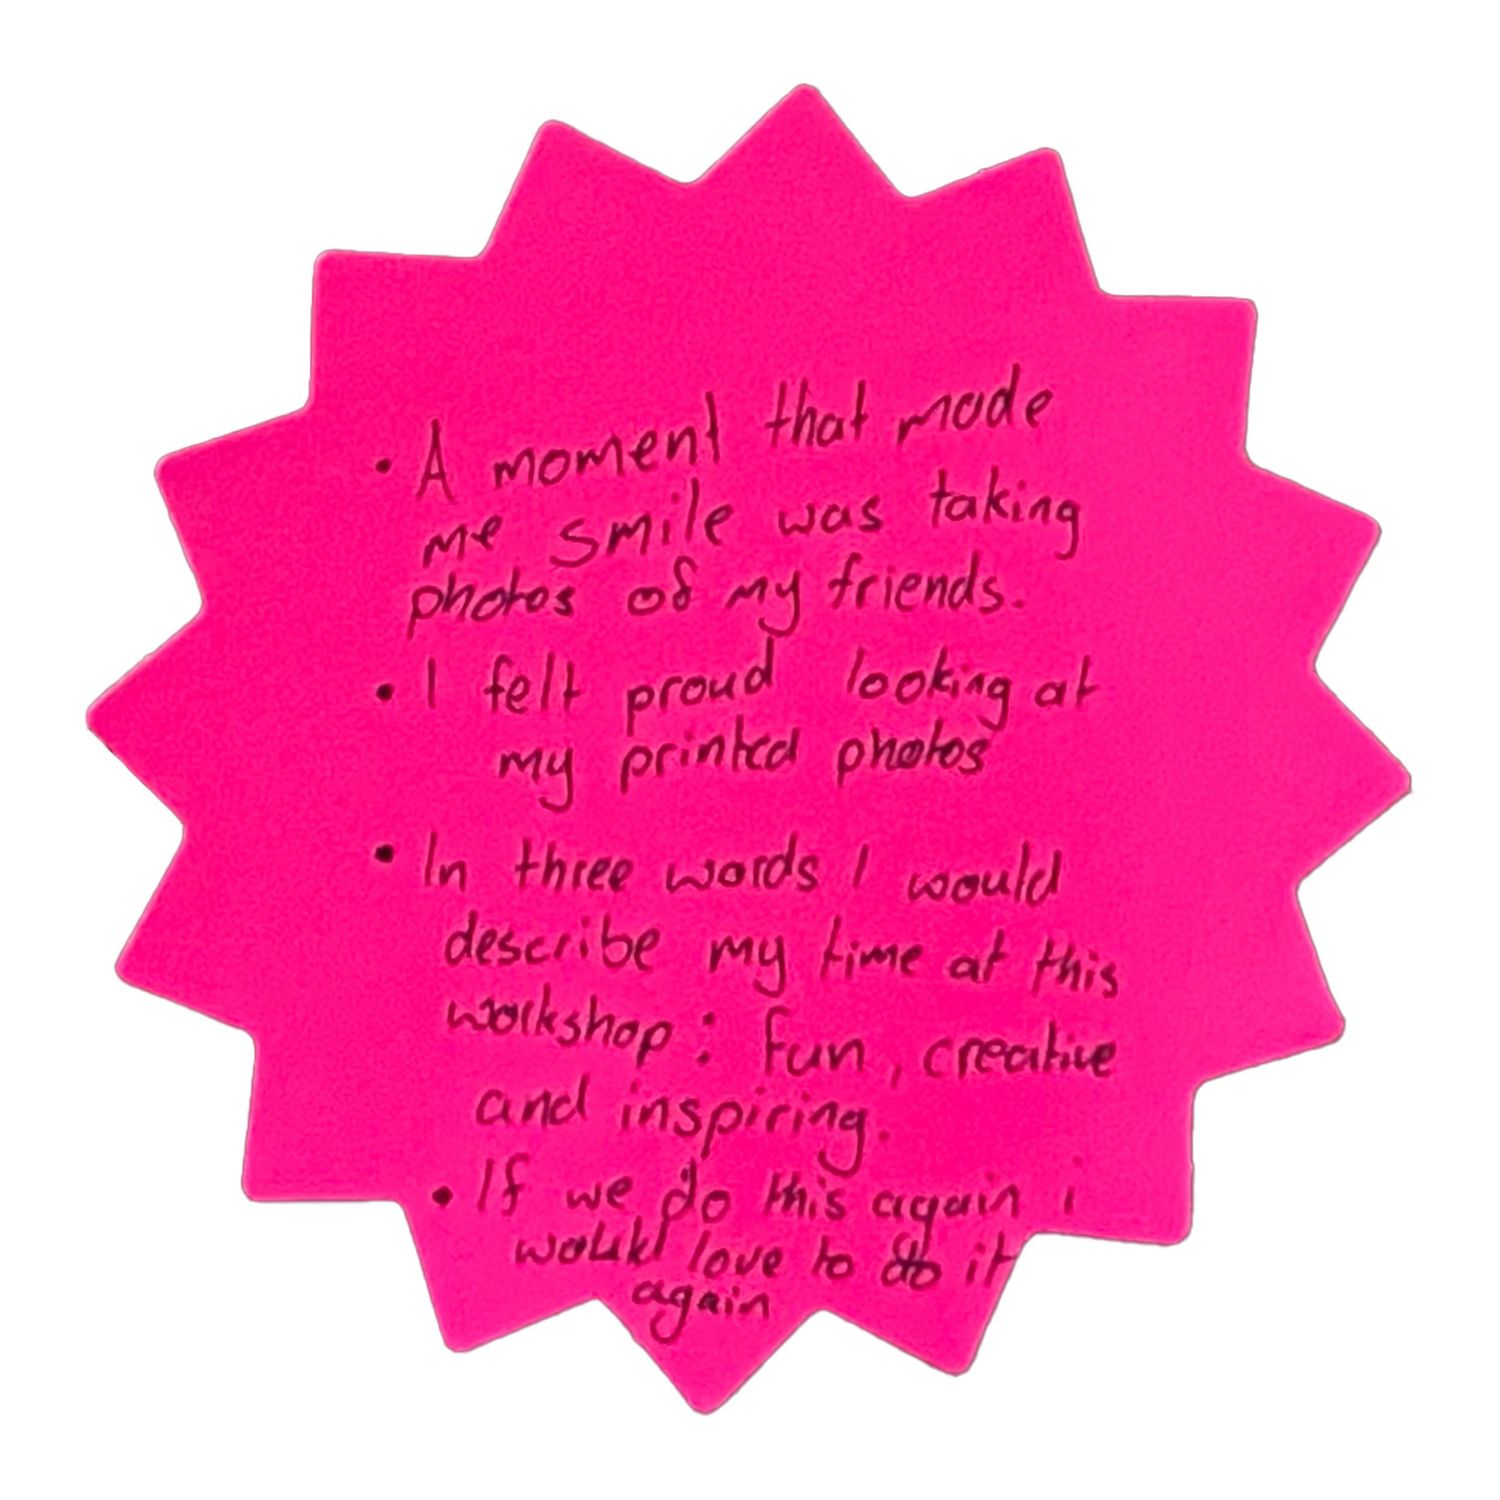 • A moment that made
me smile was taking
photos of my friends.
• I felt proud looking at
my printed photos
• In three words I would
describe my time at this
workshop: fun, creative
and inspiring.
• If we do this again i
would love to do it
again